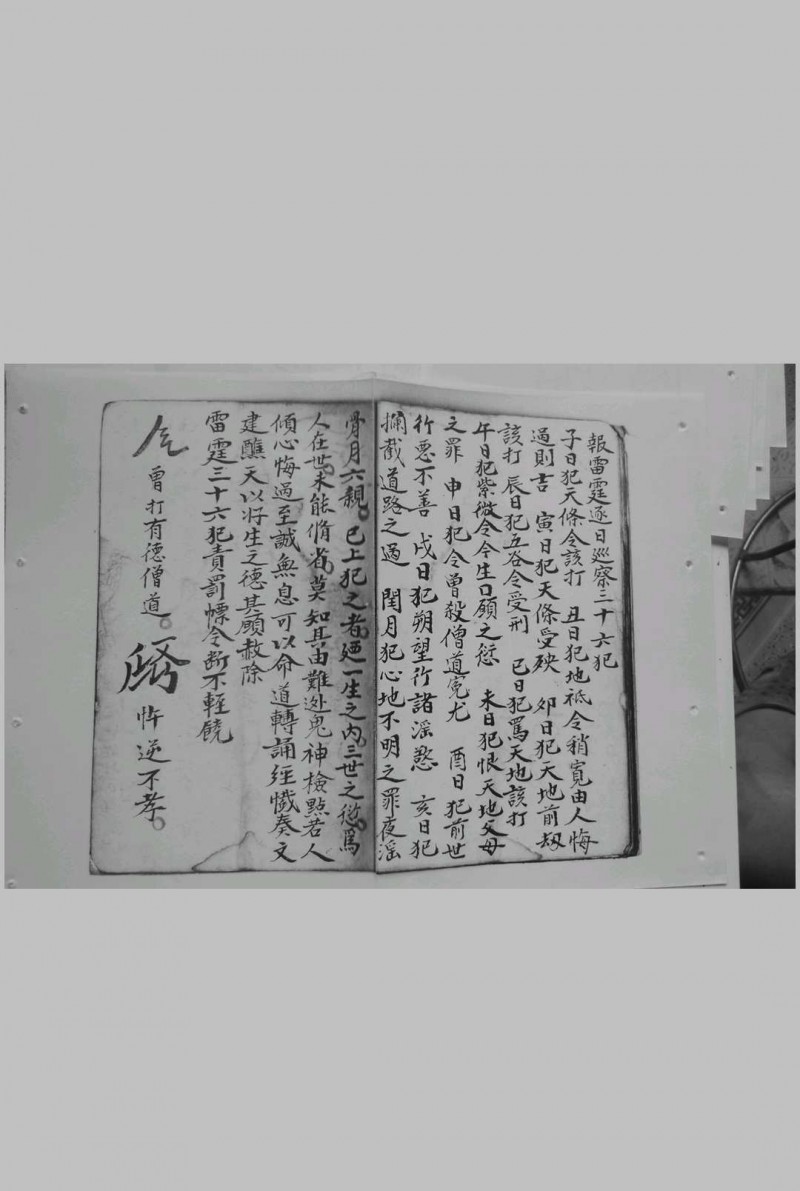 報雷霆逐日巡察三十六犯
子日犯天條令該打 丑日犯地祗令稍寬由人悔
過則吉 寅日犯天條受殃 卯日犯天地前劫
該打 辰日犯五谷令受刑 巳日犯罵天地該打
午日犯紫微令今生口願之愆 未日犯恨天地父母
之罪 申日犯令曾殺僧道寃尤 酉日犯前世
行悪不善 戌日犯朔望行諸滛慾 亥日犯
攔截道路之過 閏月犯心地不明之罪夜滛
骨月六親。已上犯之者廹一生之内三世之愆爲
人在世未能脩省莫知其由難迯鬼神檢㸃若人
傾心悔過至誠無息可以命道轉誦經懴奏文
建醮天以好生之德其願赦除
雷霆三十六犯責罰慓令断不輕饒
曾打有德僧道。 忤逆不孝。